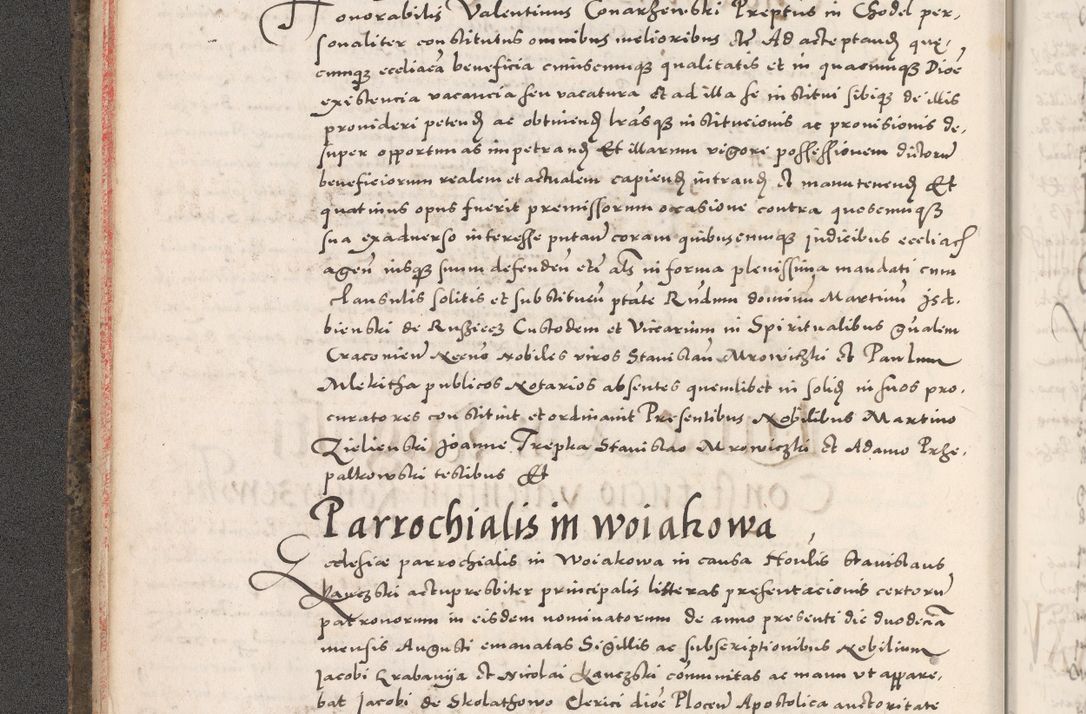 Honorabilis Valentinus Conarzewski Preptus in Chodel per-
sonaliter constitutus omnibus melioribus etc Ad acceptand quę-
cunqz eccliaca beneficia cuiuscunqz qualitatis et in quacunqz Dioc
existencia vacancia seu vacatura Et ad illa se institui sibiqz de illis
provideri petend ac obtinend lrasqz institucionis ac provisionis de-
super opportunas impetrand Et illarum vigore possessionem dictorum
beneficiorum realem et actualem capiend intrand et manutenend Et
quatinus opus fuerit premissorum occasione contra quoscunqz
sua ex adverso interesse putan coram quibuscunqz judicibus eccliacis
agen iusqz suum defenden etc als in forma plenissima mandati cum
clausulis solitis et substituen ptate Rndum dominum Martinum Jsd-
bienski de Rusziecz Custodem et Vicarium in Spiritualibus gnalem
Cracovien Necno Nobiles viros Stanislau Mrowiczki et Paulum
Mekitha publicos Notarios absentes quemlibet in solid in suos pro-
curatores constituit et ordinavit Presentibus Nobilibus Martino
Zielienski Joanne Trepka Stanislao Mrowiczki et Adamo Prze-
palkowski testibus Et
Parrochialis in Woiakowa
Ecclesiæ parrochialis in Woiakowa in causa Honlis Stanislaus
Kanczski actu presbiter principalis litteras presentacionis certorum
patronorum in eisdem nominatorum de anno presenti die duodecia
mensis Augusti emanatas Sigillis ac subscriptionibus Nobilium
Jacobi Krabanija et Nicolai Kanczski communitas ac manu ut appare-
bat Jacobi de Skolathowo Clerici dioc Plocen Apostolica auctoritate